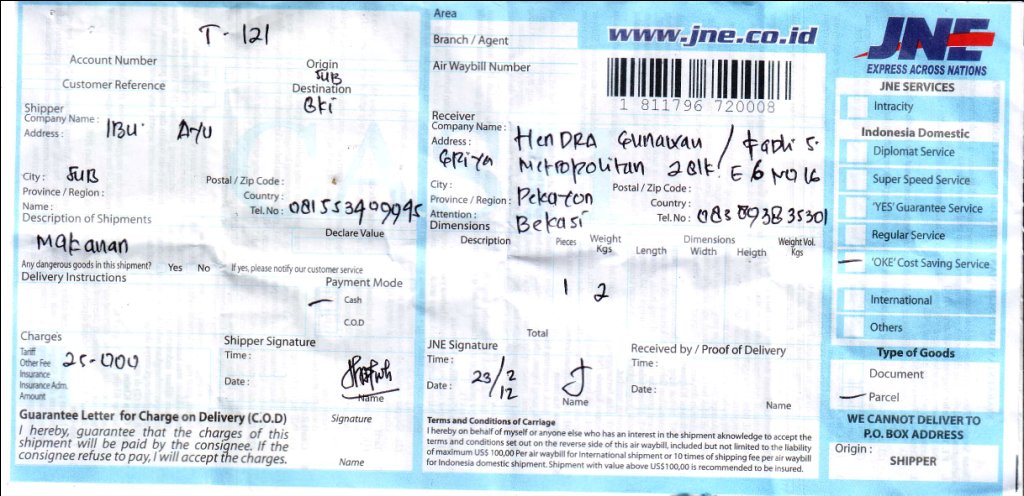 T - 121
Account Number
Customer Reference
Origin
SUB
Destination
BKI
Shipper
Company Name :
IBU. AYU
Address :
City :
SUB
Postal / Zip Code :
Province / Region :
Country :
Name :
Tel. No : 081553409945
Description of Shipments
Declare Value
Makanan
Any dangerous goods in this shipment? Yes No If yes, please notify our customer service
Delivery Instructions
Payment Mode
Cash
C.O.D
Charges
Tariff
25-000
Other Fee
Insurance
Insurance Adm.
Amount
Shipper Signature
Time :
Date :
Name
Guarantee Letter for Charge on Delivery (C.O.D)
I hereby, guarantee that the charges of this
shipment will be paid by the consignee. If the
consignee refuse to pay, I will accept the charges.
Signature
Name
Area
Branch / Agent
Air Waybill Number
www.jne.co.id
1 811796 720008
Receiver
Company Name : HENDRA GUNAWAN /
Address : GRIYA METROPOLITAN 2 Blk. E6 NO 16
City :
Postal / Zip Code :
Province / Region : Pekayon
Country :
Attention : Bekasi
Tel. No : 083893835301
Dimensions
Description Pieces Weight Kgs Length Dimensions Width Heigth Weight Vol. Kgs
1 2
Total
JNE Signature
Time :
Date : 23/2/12
Name
Received by / Proof of Delivery
Time :
Date :
Name
Terms and Conditions of Carriage
I hereby on behalf of myself or anyone else who has an interest in the shipment aknowledge to accept the
terms and conditions set out on the reverse side of this air waybill, included but not limited to the liability
of maximum US$ 100,00 Per air waybill for International shipment or 10 times of shipping fee per air waybill
for Indonesia domestic shipment. Shipment with value above US$100,00 is recommended to be insured.
JNE
EXPRESS ACROSS NATIONS
JNE SERVICES
Intracity
Indonesia Domestic
Diplomat Service
Super Speed Service
'YES' Guarantee Service
Regular Service
'OKE' Cost Saving Service
International
Others
Type of Goods
Document
Parcel
WE CANNOT DELIVER TO
P.O. BOX ADDRESS
Origin :
SHIPPER